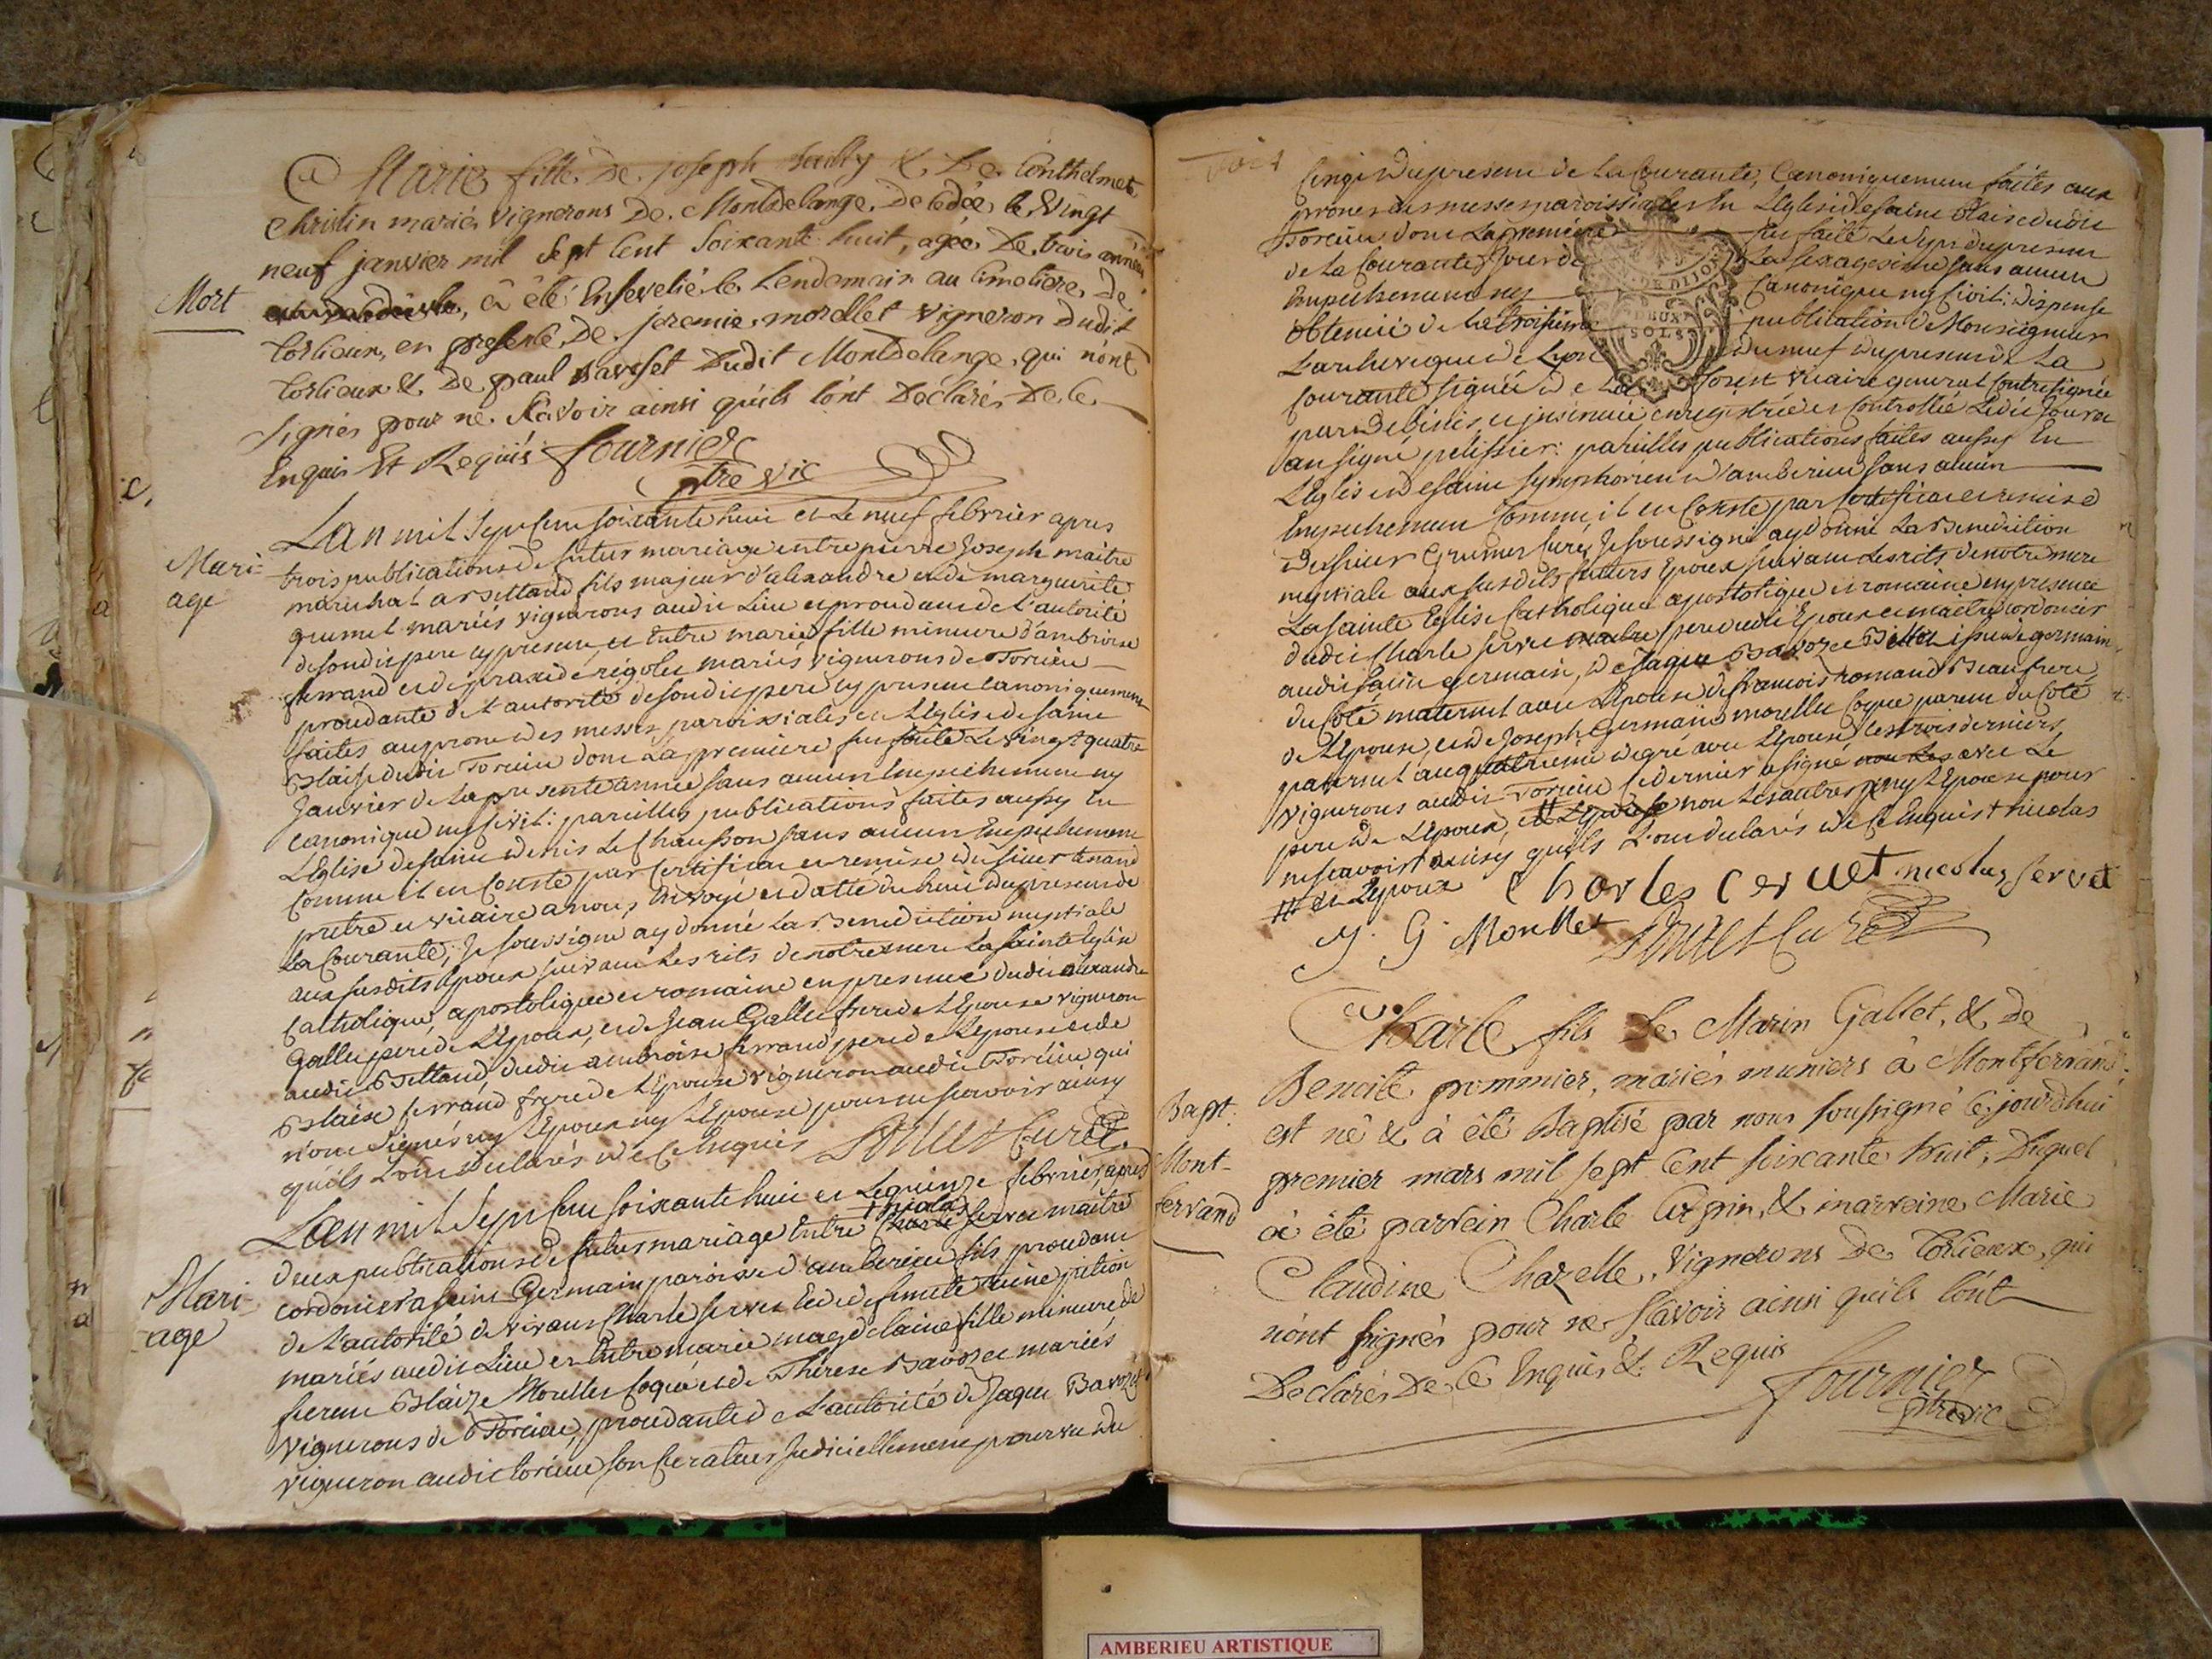 Marie fille De joseph & De
Christin mariés Vignerons De Montdelange, Decedée le Vingt
neuf janvier mil sept Cent soixante huit, agée De trois années
a été Ensevelië le Lendemain au Cimetiere De
Mort
Torlieux, en presence De jeremie morellet Vigneron Dudit
Torlieux & De paul Savoset Dudit Montdelange, qui n'ont
signés pour ne sçavoir ainsi qu'ils l'ont Declarés De Ce
Enquis Et Requis fournier
ptre vic
Lan mil sept Cent soixante huit et Le neuf febvrier apres
Mari-
age
trois publications de futur mariage entre pierre Joseph maitre
marechal a fils majeur d'alexandre et de marguerite
grumel mariés vignerons audit Lieu et procedant de L'autorité
desondit pere cy present, et Entre marie fille mineure d'ambroise
ferrand et de praxide rigolet mariés vignerons de Torcieu
procedante de L'autorité desondit pere cy present Canoniquement
faites au prone des messes paroissiales en L'Eglise de saint
Blaise dudit Torcieu dont La premiere fut faite Le vingt quatre
Janvier de La presente année sans aucun Empechement ny
canonique ny Civil: pareilles publications faites aussy En
L'Eglise de saint denis Le Chausson sans aucun Empechement
Comme il en Conste par Certificat et remise du sieur tenand
pretre et vicaire a nous Envoyé et datté du huit du present de
La Courante; Je soussigné ay donné La Benediction nuptiale
aux susdits Epoux suivant Les rits de notre mere La sainte Eglise
Catholique, apostolique et romaine en presence dudit alexandre
Gallet pere de L'Epoux, et de Jean Gallet frere de L'Epoux vigneron
audit Bettand, dudit ambroise ferrand pere de L'epouse et de
Blaise ferrand frere de L'Epouse vigneron audit Torcieu qui
n'ont signés ny L'Epoux ny L'Epouse pour ne sçavoir ainsy
qu'ils L'ont declarés de Ce Enquis Curé
Lan mil sept Cent soixante huit et Le quinze febvrier, apres
+ nicolas
deux publications de futur mariage Entre Charle servet maitre
Mari-
age
cordonier a saint Germain paroisse d'amberieu fils procedant
de L'autorité de vivant Charle servet et de defunte
mariés audit Lieu et Entre marie magdelaine fille mineure de
Blaize Morellet Coque et de Therese Bavozet mariés
vignerons de Torcieu, procedante de L'autorité de Jaque Bavozet
vigneron audit torcieu son Curateur Judiciellement pourvu du
Cinq du present de La Courante, Canoniquement faites aux
prones des messes paroissiales En L'Eglise de saint Blaise dudit
Torcieu dont La premiere fut faite Le sept du present
de La Courante Jour de La sexagesime sans aucun
Empechement ny Canonique ny Civil: dispense
DE DIJON
DEUX
SOLS
obtenuë de La troisieme publication de Monseigneur
L'archeveque de Lyon du neuf du present de La
Courante signée de La forest vicaire general Contresignée
par et insinuée enregistrée et Controllée Ledit Jour et
an signé pelissier: pareilles publications faites aussy En
L'Eglise de saint symphorien d'amberieu sans aucun
Empechement Comme il en Conste par Certificat et remise
du sieur Grumet Curé, Je soussigné ay donné La Benediction
nuptiale aux susdits futurs Epoux suivant Les rits de notre mere
La sainte Eglise Catholique apostolique et romaine en presence
dudit Charle servet pere dudit Epoux et maitre cordonier
audit saint germain, de Jaque Bavozet issu de germain
du Coté maternel avec L'Epouse, de francois romand Beaufrere
de L'Epouse, et de Joseph Germain morellet Coque parent du Coté
paternel au quatrieme degré avec L'Epouse, les trois derniers
vignerons audit Torcieu Ce dernier a signé avec Le
pere de L'Epoux, non Les autres ny L'Epouse pour
ne sçavoir ainsy qu'ils L'ont declarés de Ce Enquis + nicolas
et L'Epoux Charles Cervet nicolas servet
J. G. Morellet Curé
Charle fils De Marin Gallet, & De
Benoite pommier, mariés muniers à Montferrand
Bapt.
Mont-
ferrand
est né & à été Baptisé par nous soussigné Ce jourd'hui
premier mars mil sept Cent soixante huit, Duquel
à été parrein Charle & marreine Marie
Claudine Chazelle, Vignerons De Torlieux, qui
n'ont signés pour ne sçavoir ainsi qu'ils l'ont
Declarés De Ce Enquis & Requis
fournier
ptre vic
AMBERIEU ARTISTIQUE